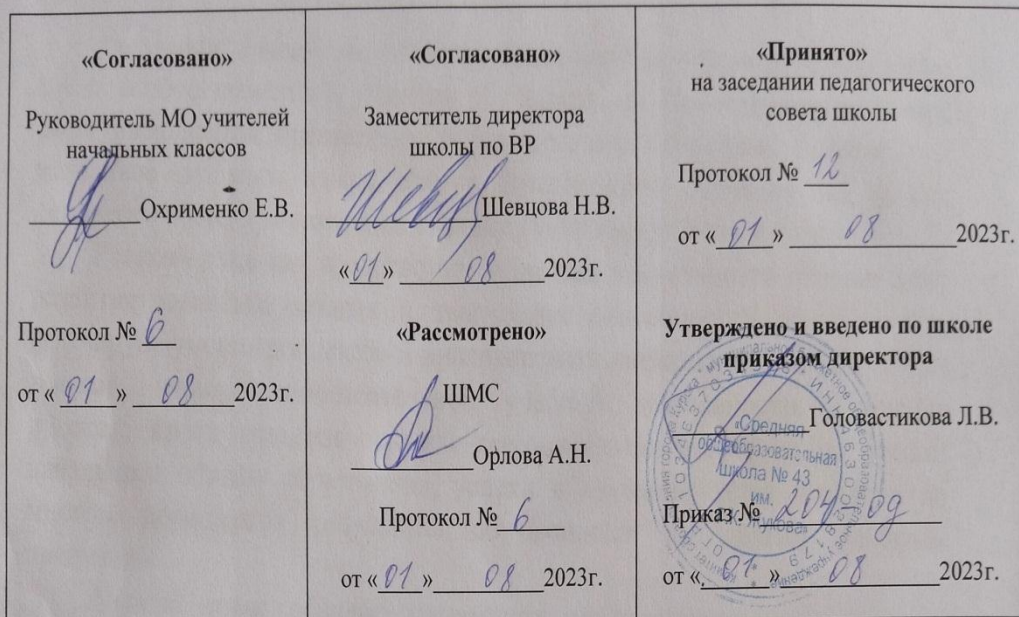 «Согласовано»
Руководитель МО учителей
начальных классов
Охрименко Е.В.
Протокол № 6
от « 01 » 08 2023г.
«Согласовано»
Заместитель директора
школы по ВР
Шевцова Н.В.
«01» 08 2023г.
«Рассмотрено»
ШМС
Орлова А.Н.
Протокол № 6
от «01» 08 2023г.
«Принято»
на заседании педагогического
совета школы
Протокол № 12
от « 01 » 08 2023г.
Утверждено и введено по школе
приказом директора
Головастикова Л.В.
Приказ № 204-од
от « 01 » 08 2023г.
«Средняя
общеобразовательная
школа № 43
им.
Жукова»